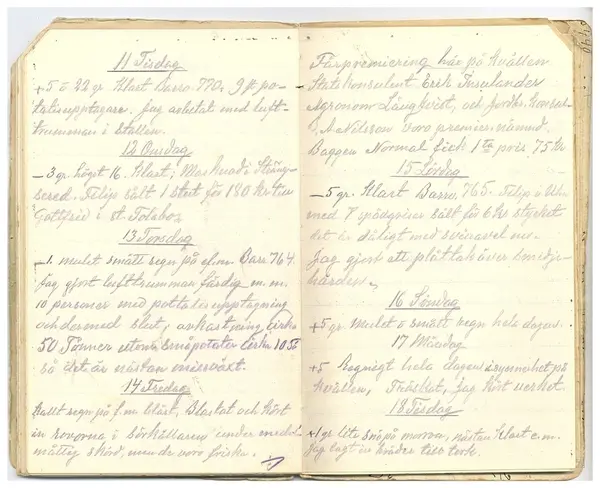 11 Tisdag
+5 o 22 gr. Klart Barro. 770. 9 st po-
tatisupptagare. Jag arbetat med luft-
trumman i Stallen.
12 Onsdag
-3 gr. högst 16. Klart; Marknad i
sered. Filip sålt 1 stut för 180 kr till
Gottfrid i st
13 Torsdag
-1. mulet smått regn på e.m. Barr 764.
Jag gjort lufttrumman färdig m.m.
10 personer med pottatisupptagning
och dermed slut; avkastning cirka
50 Tönner utom småpotater cirka 10
så det är nästan missväxt.
14 Fredag
Kallt regn på f.m. blåst, Blastat och kört
in rovorna i Rörkällaren under medel-
måttig skörd, men de voro friska.
Fårpremiering här på kvällen
Statskonsulent Erik Insulander
Agronom Långkvist, och Jordbr. Konsul.
A. Nilsson voro premienämnd.
Baggen Normal fick 1 pris 75 kr
15 Lördag
-5 gr. Klart Barr. 765. Filip i
med 7 spädgrisar sålt för 6 kr stycket
det är dåligt med svinavel nu.
Jag gjort ett plåttak över smidje-
härden.
16 Söndag
+5 gr. Mulet o smått regn hela dagen.
17 Måndag
+5 Regnigt hela dagen isynnerhet på
kvällen, Tröskat, Jag kört verket.
18 Tisdag
+1 gr lite snö på morron, nästan klart e.m.
Jag lagt in bräder till tork.